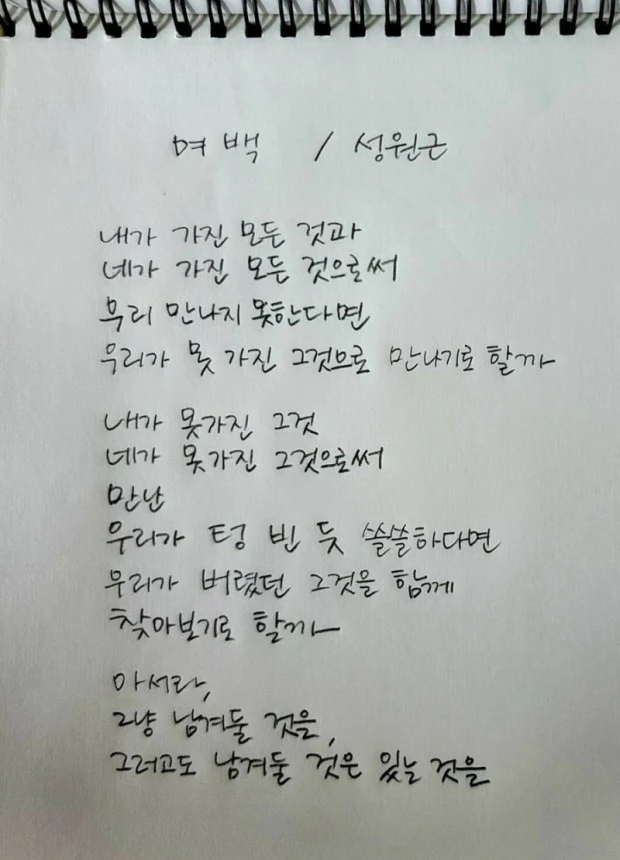 여백 / 성원근
내가 가진 모든 것과
네가 가진 모든 것으로써
우리 만나지 못한다면
우리가 못 가진 그것으로 만나기로 할까
내가 못가진 그것
네가 못가진 그것으로써
만난
우리가 텅 빈 듯 쓸쓸하다면
우리가 버렸던 그것을 함께
찾아보기로 할까
아서라,
그냥 남겨둘 것을,
그러고도 남겨둘 것은 있는 것을